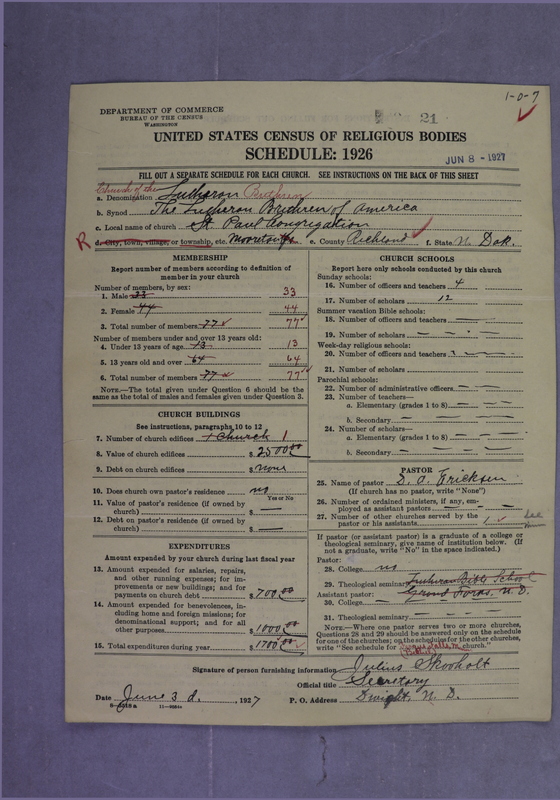 1-0-7
DEPARTMENT OF COMMERCE
BUREAU OF THE CENSUS
WASHINGTON
21
UNITED STATES CENSUS OF RELIGIOUS BODIES
SCHEDULE: 1926
JUN 8 - 1927
FILL OUT A SEPARATE SCHEDULE FOR EACH CHURCH. SEE INSTRUCTIONS ON THE BACK OF THIS SHEET
Church of the
a. Denomination Lutheran Brethren
b. Synod The Lutheran Brethren of America
c. Local name of church St. Paul Congregation
R d. City, town, village, or township, etc. Mooreton e. County Richland f. State N. Dak.
MEMBERSHIP
Report number of members according to definition of member in your church
Number of members, by sex:
1. Male 33 33
2. Female 44 44
3. Total number of members 77 77
Number of members under and over 13 years old:
4. Under 13 years of age 13 13
5. 13 years old and over 64 64
6. Total number of members 77 77
NOTE.—The total given under Question 6 should be the same as the total of males and females given under Question 3.
CHURCH BUILDINGS
See instructions, paragraphs 10 to 12
7. Number of church edifices 1 Church 1
8. Value of church edifices $ 2500 00
9. Debt on church edifices $ none
10. Does church own pastor's residence no
Yes or No
11. Value of pastor's residence (if owned by church) $ —
12. Debt on pastor's residence (if owned by church) $ —
EXPENDITURES
Amount expended by your church during last fiscal year
13. Amount expended for salaries, repairs, and other running expense; for improvements or new building; and for payments on church debt $ 700 00
14. Amount expended for benevolences, including home and foreign missions; for denominational support; and for all other purposes $ 1000 00
15. Total expenditures during year $ 1700 00
CHURCH SCHOOLS
Report here only schools conducted by this church
Sunday schools:
16. Number of officers and teachers 4
17. Number of scholars 12
Summer vacation Bible schools:
18. Number of officers and teachers —
19. Number of scholars —
Week-day religious schools:
20. Number of officers and teachers —
21. Number of scholars —
Parochial schools:
22. Number of administrative officers —
23. Number of teachers:
a. Elementary (grades 1 to 8) —
b. Secondary —
24. Number of scholars—
a. Elementary (grades 1 to 8) —
b. Secondary —
PASTOR
25. Name of pastor Erickson
(If church has no pastor, write "None")
26. Number of ordained ministers, if any, employed as assistant pastors —
27. Number of other churches served by the pastor or his assistants 1
If pastor (or assistant pastor) is a graduate of a college or theological seminary, give name of institution below. (If not a graduate, write "No" in the space indicated.)
Pastor:
28. College no
29. Theological seminary Lutheran Bible School
Assistant pastor: Grand Forks, N. D.
30. College —
31. Theological seminary —
NOTE.—Where one pastor serves two or more churches, Questions 28 and 29 should be answered only on the schedule for one of the churches; on the schedules for the other churches, write "See schedule for church."
Signature of person furnishing information Julius Skovholt
Official title Secretary
Date June 3 d., 1927 P. O. Address Dwight, N. D.